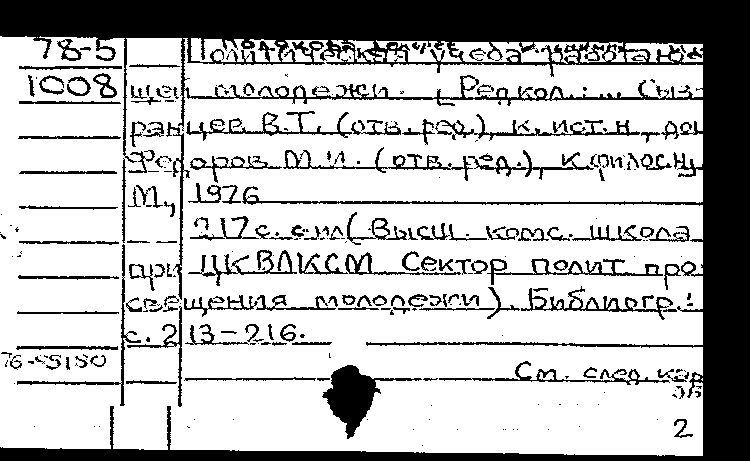 78-5 Политическая учеба работаю-
1008 щей молодежи. [Редкол.: ... Сыз-
ранцев В.Т. (отв. ред.), к. ист. н, доц
Федоров М.И. (отв. ред.), к. филос. н,
М, 1976
217 с. с ил (Высш. комс. школа
при ЦК ВЛКСМ Сектор полит про-
свещения молодежи). Библиогр.:
с. 213-216.
См. след. кар
2